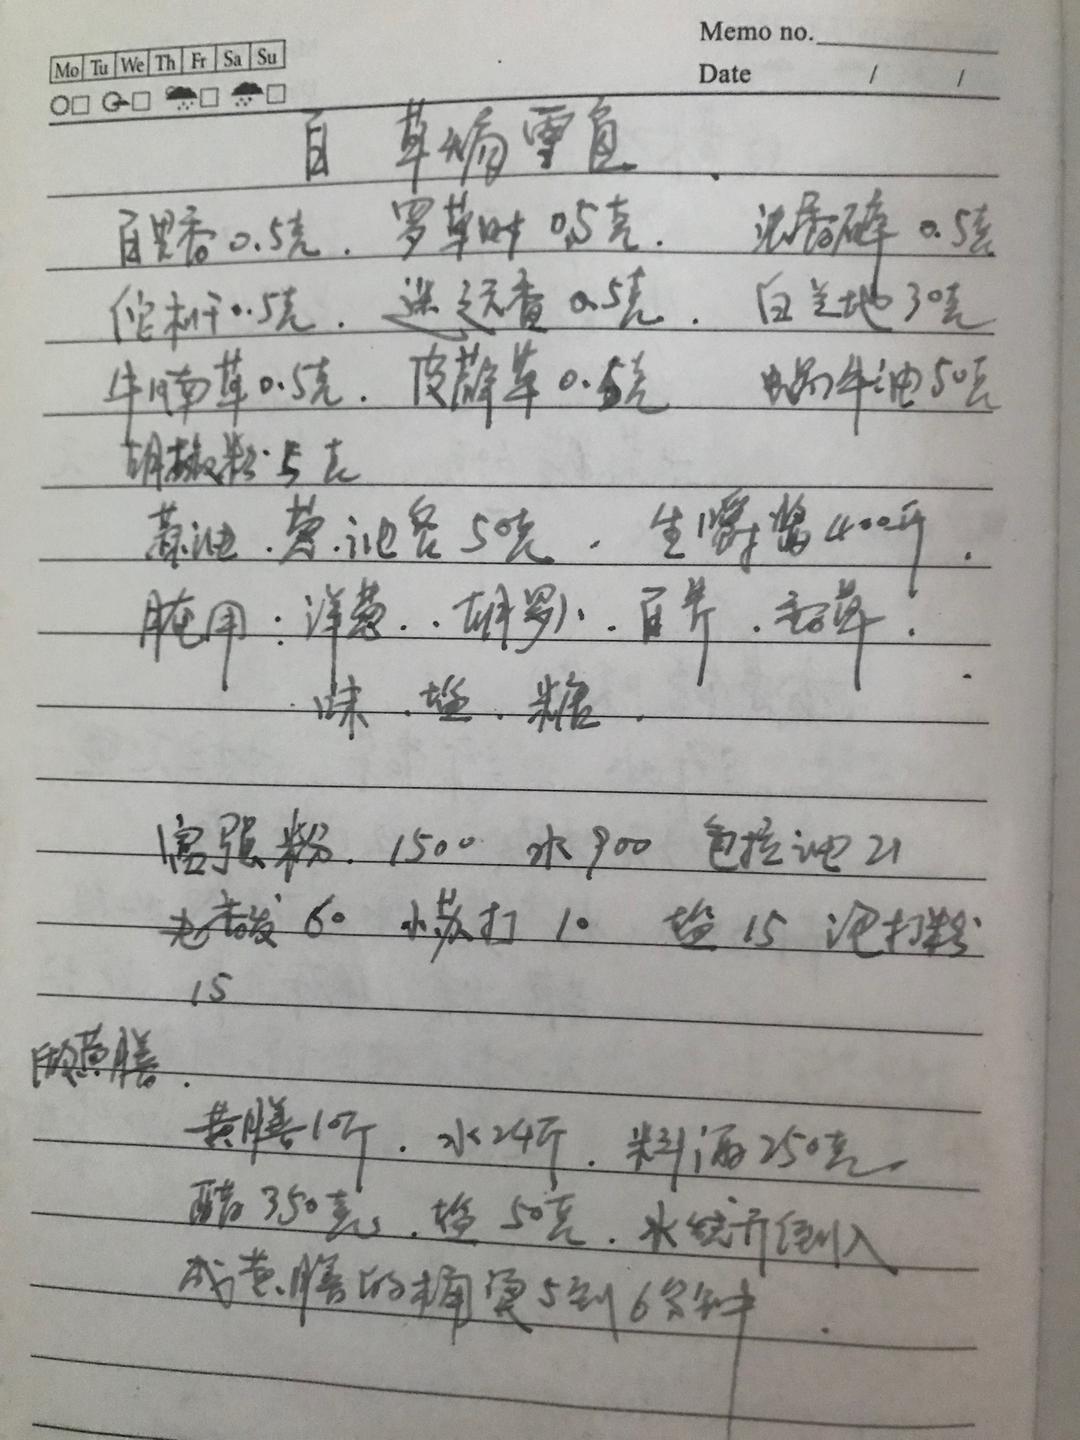 Memo no.
Mo Tu We Th Fr Sa Su
Date / /
百草焗雪鱼
百里香0.5克. 罗草叶0.5克. 法香碎0.5克
0.5克. 迷迭香0.5克. 白兰地30克
牛腩草0.5克. 皮薢草0.5克 牛油50克
胡椒粉.5克
蒜油.葱.油各50克. 生嚼酱400斤.
腌用:洋葱..胡罗卜.百芹.香草.
味.塩.糖.
富强粉. 1500 水900 色拉油21
老酵 60 小苏打10 塩15 泡打粉
15
做黄膳.
黄膳10斤. 水24斤. 料酒250克
醋350克. 塩50克. 水烧开倒入
成黄膳的桶烫5到6分钟.